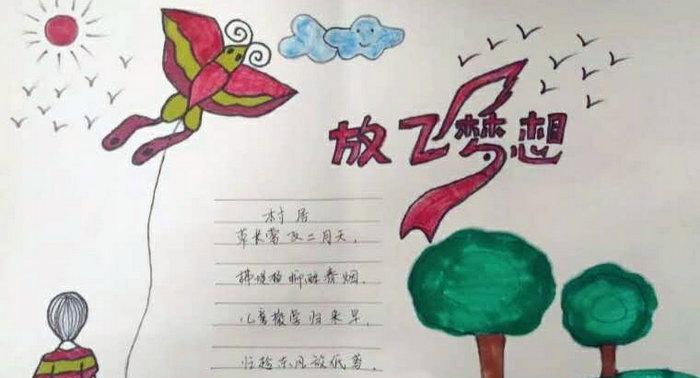 放飞梦想
村居
草长莺飞二月天，
拂堤杨柳醉春烟。
儿童散学归来早，
忙趁东风放纸鸢。